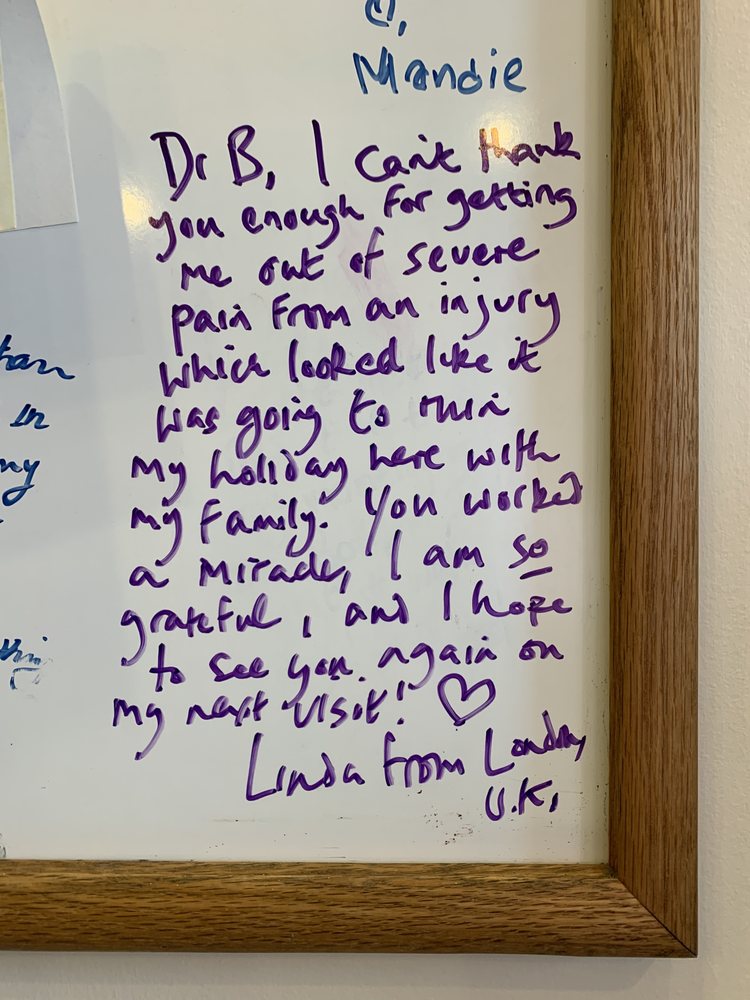 Mandie
Dr B, I can't thank
you enough for getting
me out of severe
pain from an injury
which looked like it
was going to ruin
my holiday here with
my family. You worked
a miracle, I am so
grateful, and I hope
to see you again on
my next visit! ♡
Linda from London,
U.K.
in
my